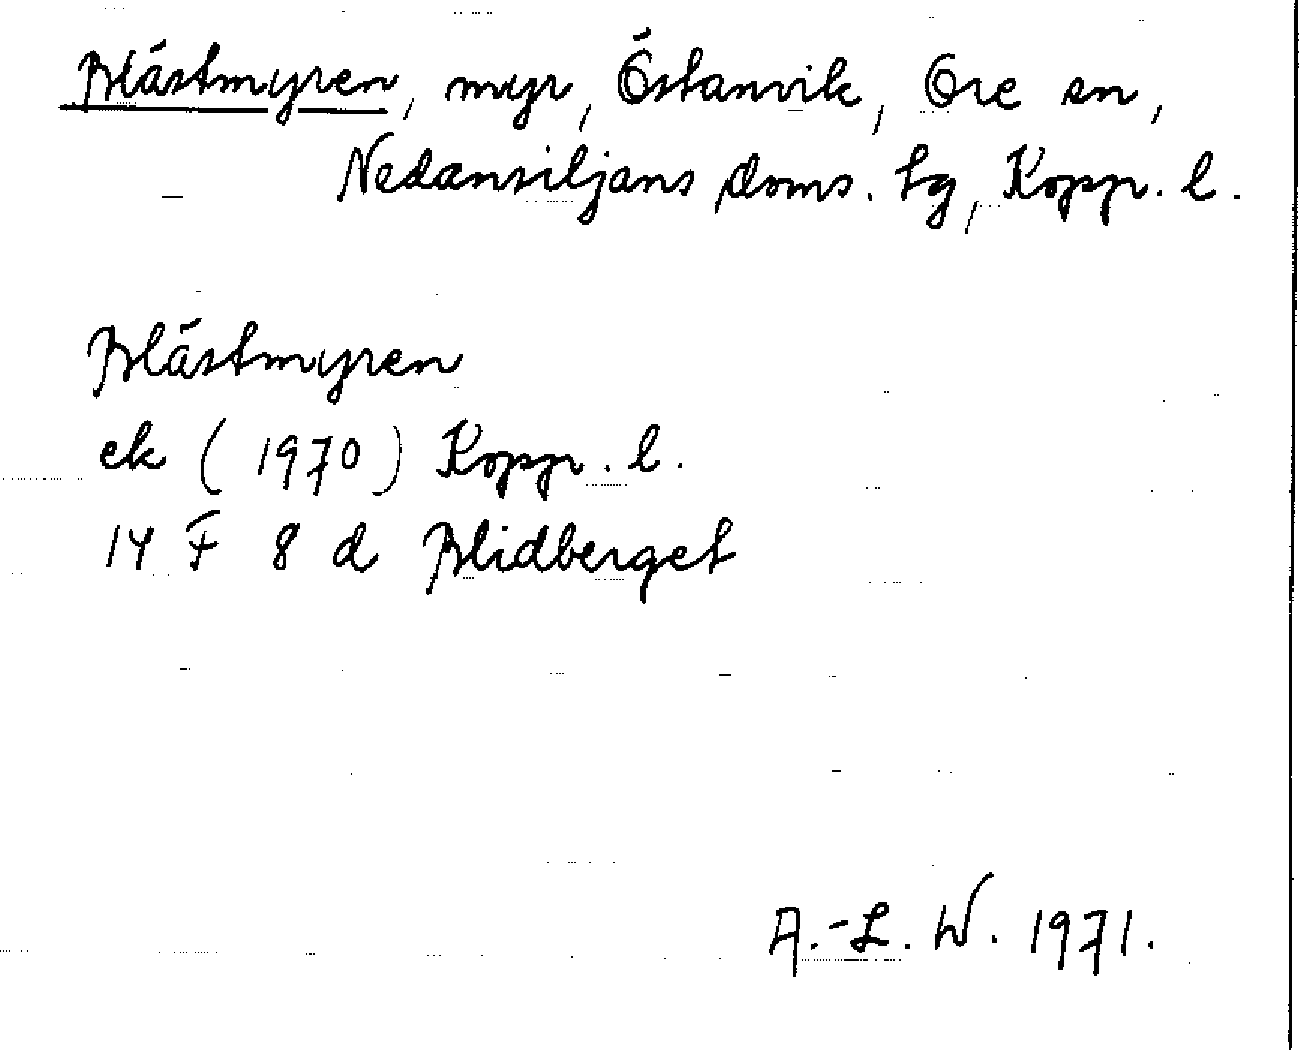 Blästmyren, myr, Östanvik, Ore sn,
Nedansiljans doms. tg, Kopp. l.
Blästmyren
ek (1970) Kopp. l.
14 F 8 d Blidberget
A.-L. W. 1971.